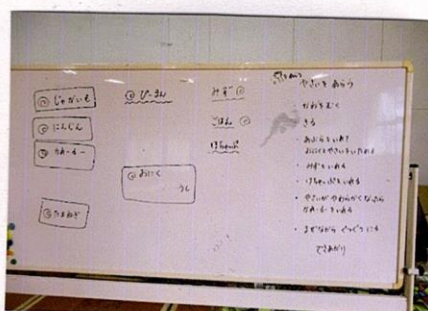 じゃがいも
にんじん
かれーるー
たまねぎ
ぴーまん
おにく
うし
みず
ごはん
けちゃっぷ
やさいを あらう
・かわをむく
・きる
・あぶらをいれて
おにくとやさいをいためる
・みずをいれる
・けちゃっぷをいれる
・やさいが やわらかくなったら
かれーるーをいれる
・まぜながら ぐつぐつにる
できあがり